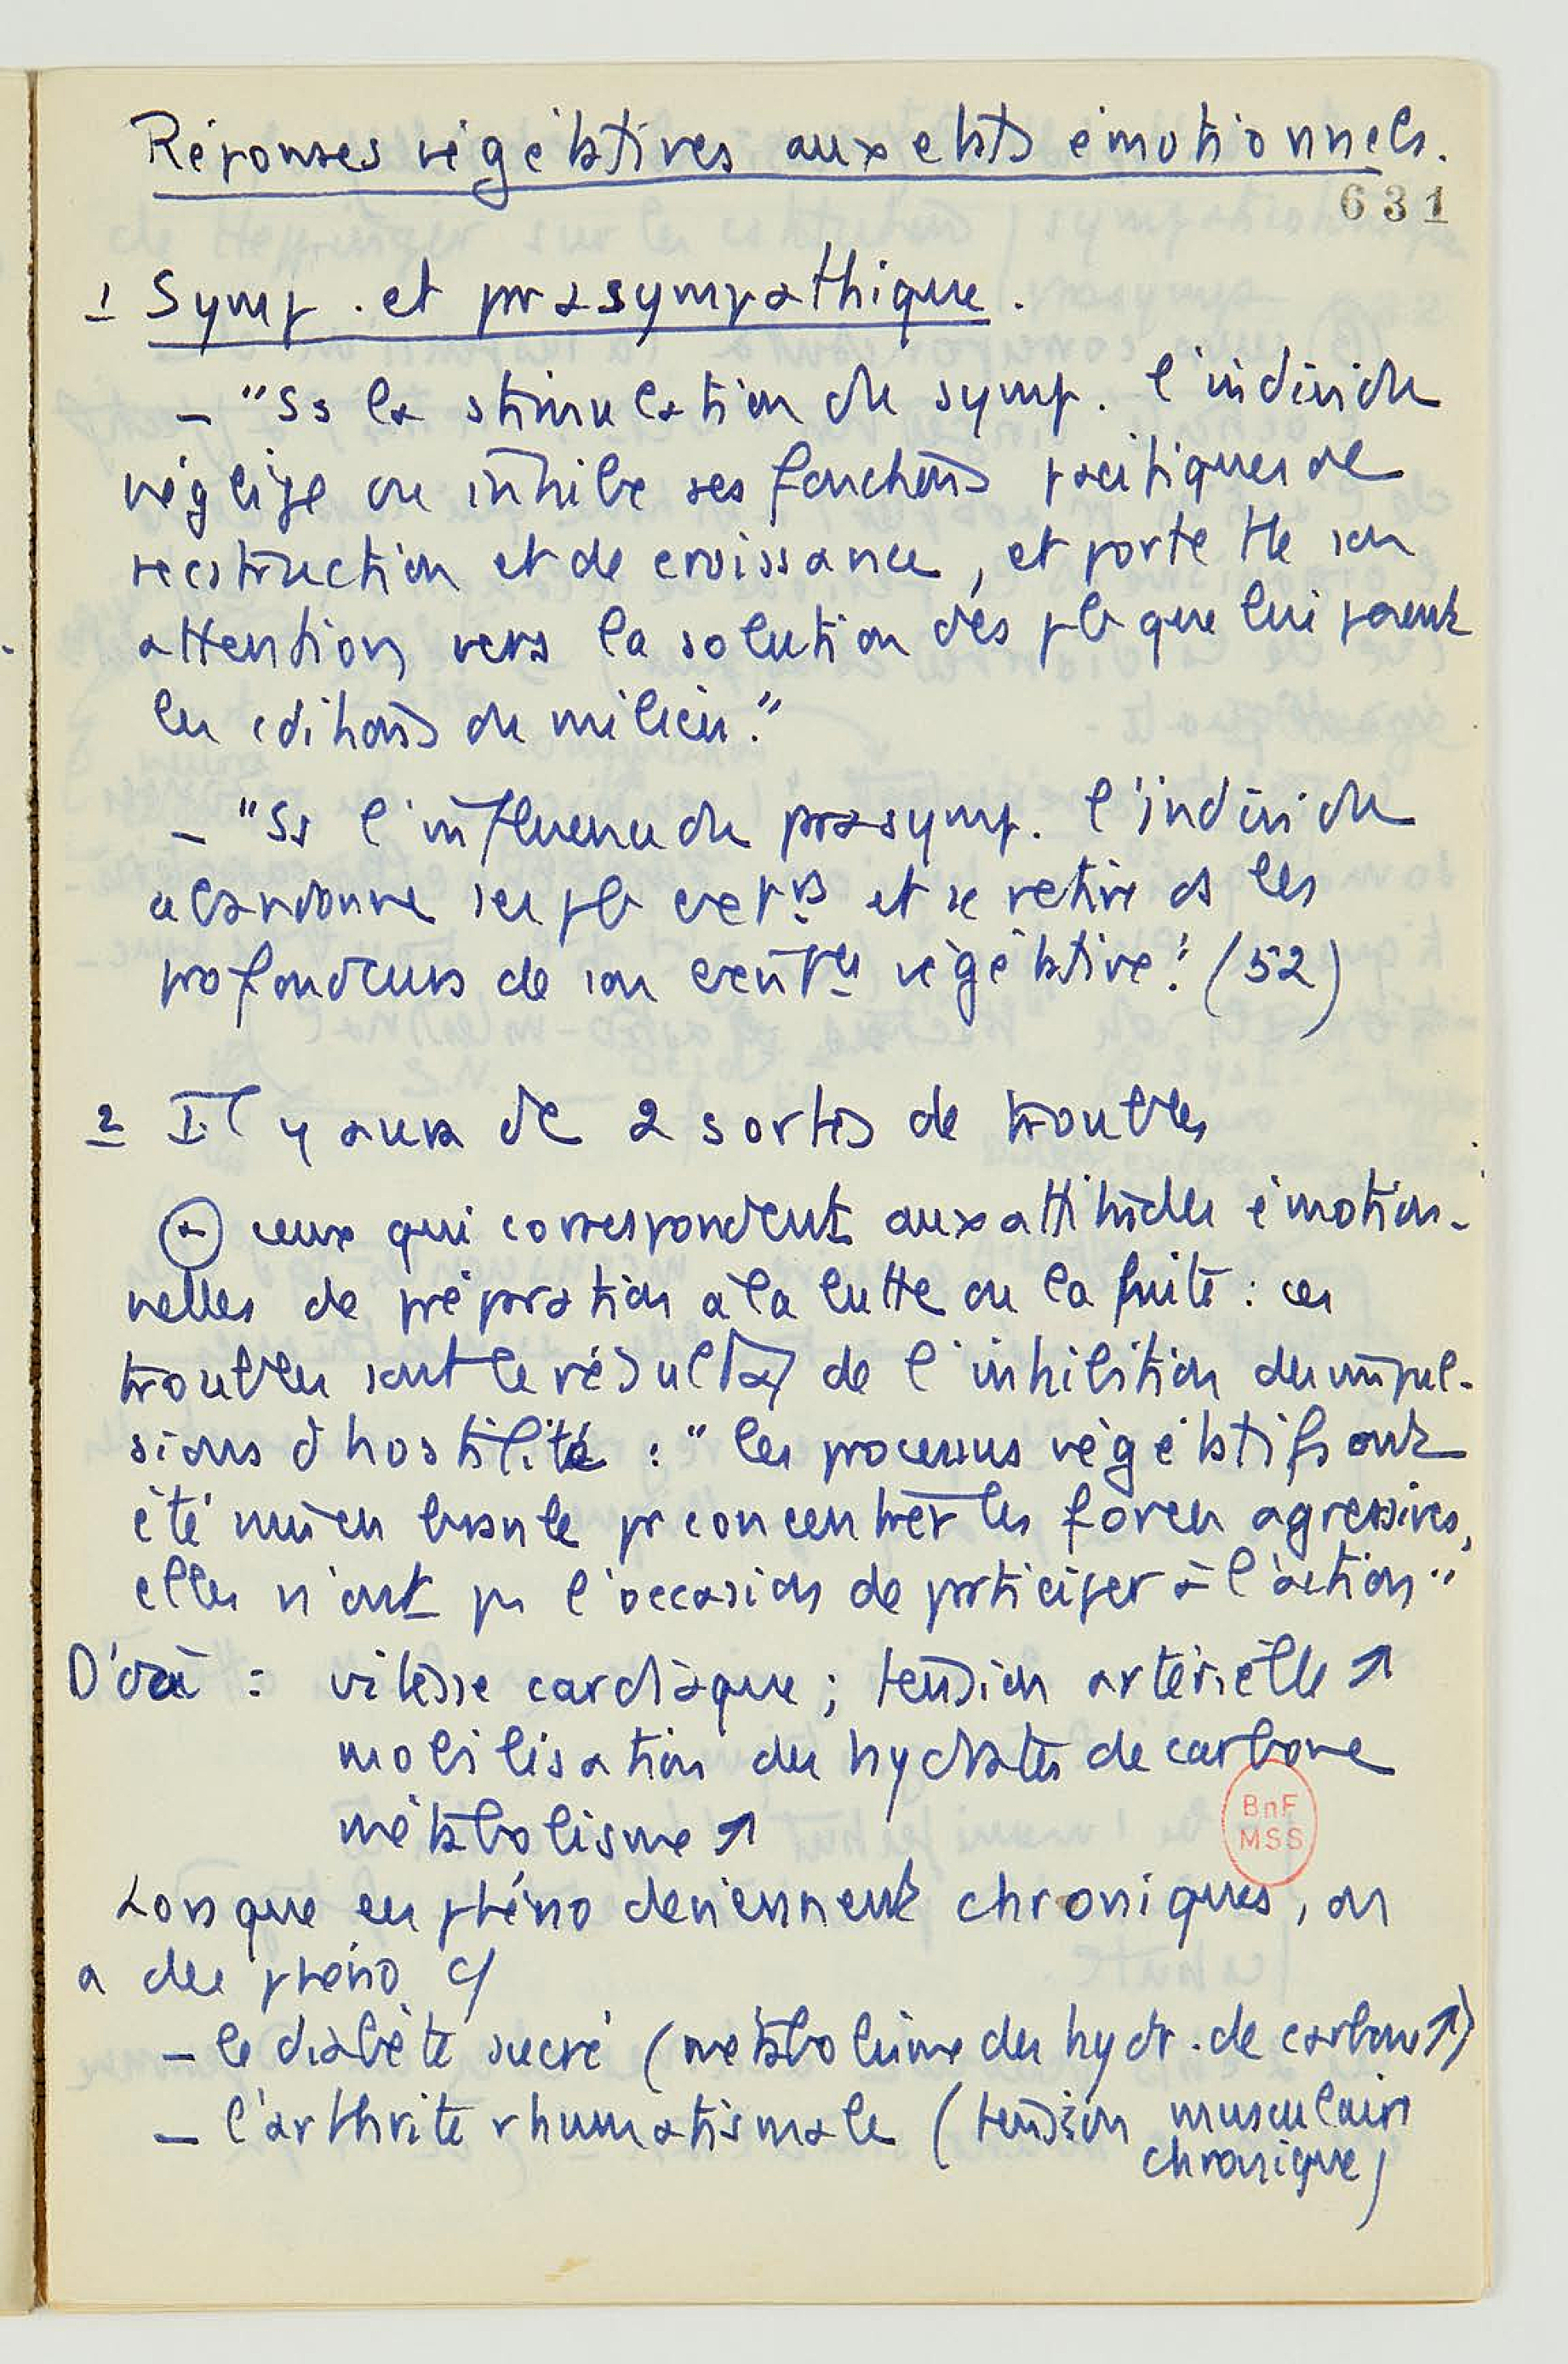 Réponses végétatives aux etats émotionnels.
631
1 Symp. et prasympathique.
– "Ss la stimulation du symp. l'individu
néglige ou inhibe ses fonctions pacifiques de
recstruction et de croissance, et porte tte son
attention vers la solution des pb que lui posent
les cditions du milieu."
– "Ss l'influence du prasymp. l'individu
abandonne ses pb ext rs et se retire ds les
profondeurs de son existce végétative." (52)
2 Il y aura dc 2 sortes de troubles
(a) ceux qui correspondent aux attitudes émotion-
nelles de préparation à la lutte ou la fuite : ces
troubles sont le résultat de l'inhibition des impul-
sions d'hostilité : "les processus végétatifs ont
été mis en branle pr concentrer les forces agressives,
elles n'ont pas l'occasion de participer à l'action"
D'où : vitesse cardiaque ; tension artérielle ↗
mobilisation des hydrates de carbone
métabolisme ↗
BnF
MSS
Lorsque ces phéno deviennent chroniques, on
a des phéno c/
– le diabète sucré (métabolisme des hydr. de carbone ↗)
– l'arthrite rhumatismale (tension musculaire
chronique)